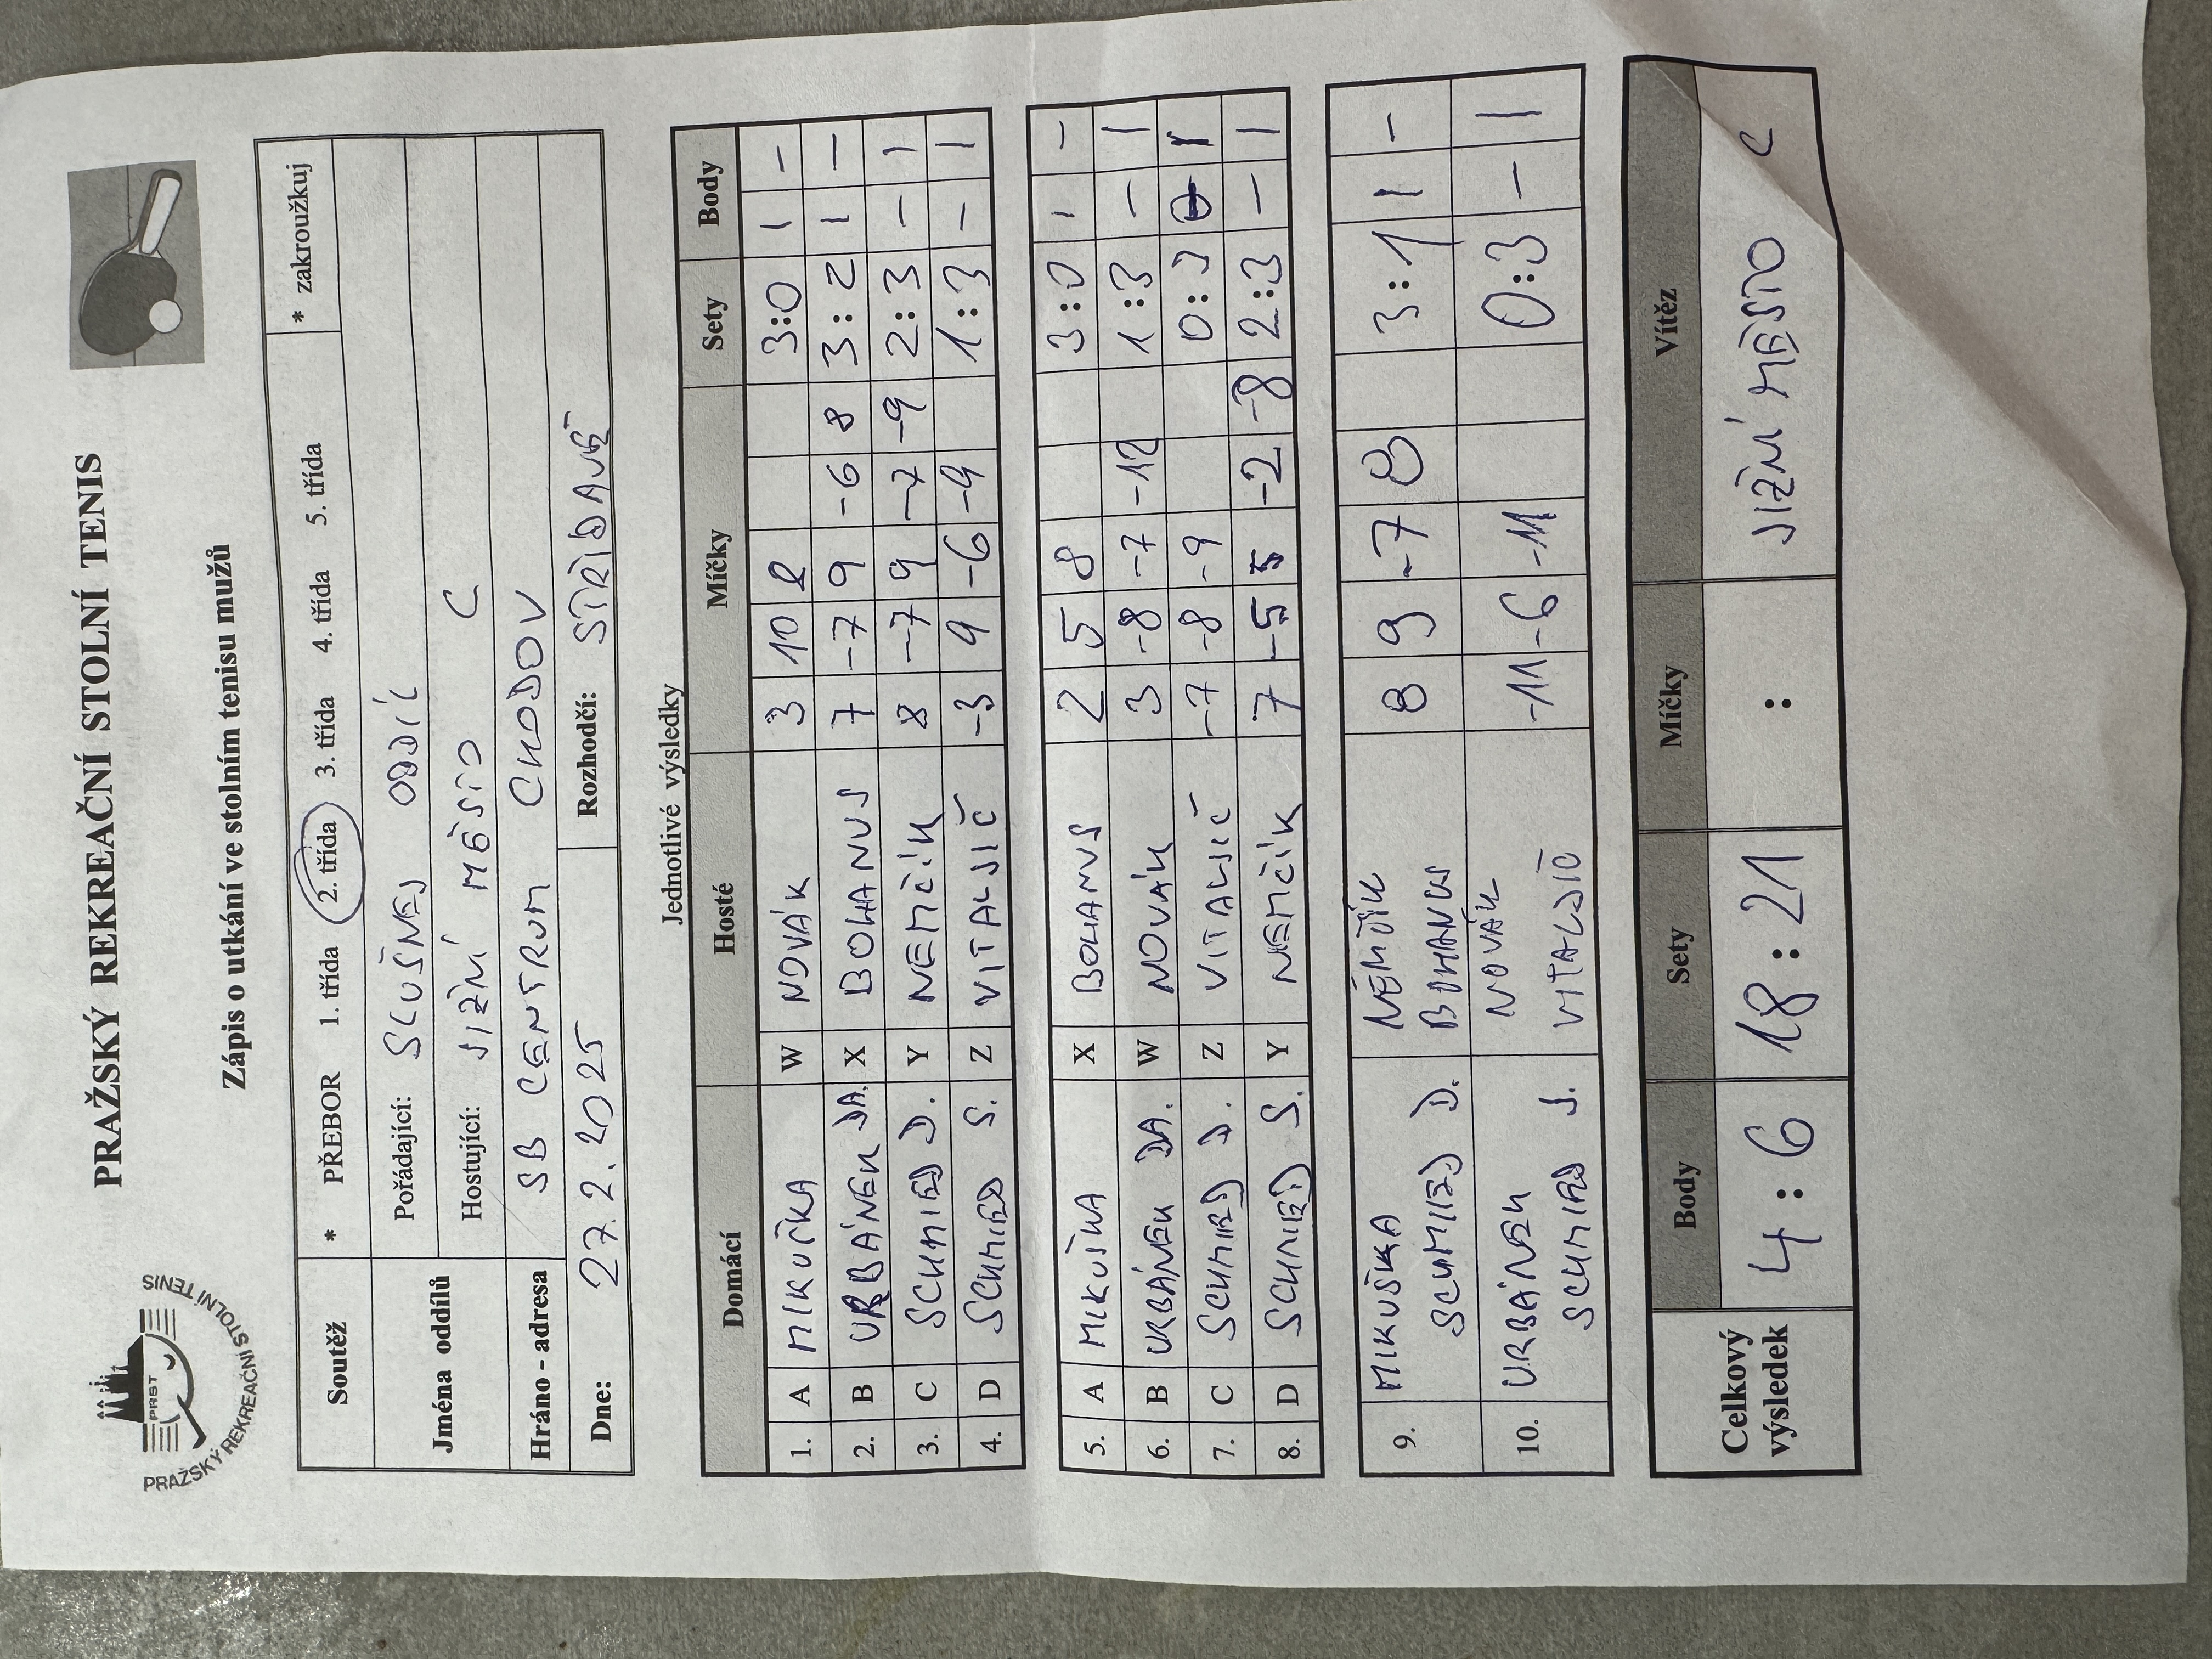 PRAŽSKÝ REKREAČNÍ STOLNÍ TENIS
PRST
PRAŽSKÝ REKREAČNÍ STOLNÍ TENIS
Zápis o utkání ve stolním tenisu mužů
Soutěž * PŘEBOR 1. třída 2. třída 3. třída 4. třída 5. třída * zakroužkuj
Jména oddílů Pořádající: SLUŠNEJ ODDÍL
Hostující: JIŽNÍ MĚSTO C
Hráno - adresa SB CENTRUM CHODOV
Dne: 27.2.2025 Rozhodčí: STŘÍDAVĚ
Jednotlivé výsledky
Domácí Hosté Míčky Sety Body
1. A MIKUŠKA W NOVÁK 3 10 8 3:0 1 -
2. B URBÁNEK DA. X BOHANUS 7 -7 9 -6 8 3:2 1 -
3. C SCHMIED D. Y NEMČÍK 8 -7 9 -7 -9 2:3 - 1
4. D SCHMIED S. Z VITALJIČ -3 9 -6 -9 1:3 - 1
5. A MIKUŠKA X BOHANUS 2 5 8 3:0 1 -
6. B URBÁNEK DA. W NOVÁK 3 -8 -7 -12 1:3 - 1
7. C SCHMIED D. Z VITALJIČ -7 -8 -9 0:3 1
8. D SCHMIED S. Y NEMČÍK 7 -5 5 -2 -8 2:3 - 1
9. MIKUŠKA NEMČÍK 8 9 -7 8 3:1 1 -
SCHMIED D. BOHANUS
10. URBÁNEK NOVÁK -11 -6 -11 0:3 - 1
SCHMIED S. VITALJIČ
Celkový výsledek Body Sety Míčky Vítěz
4:6 18:21 : JIŽNÍ MĚSTO C